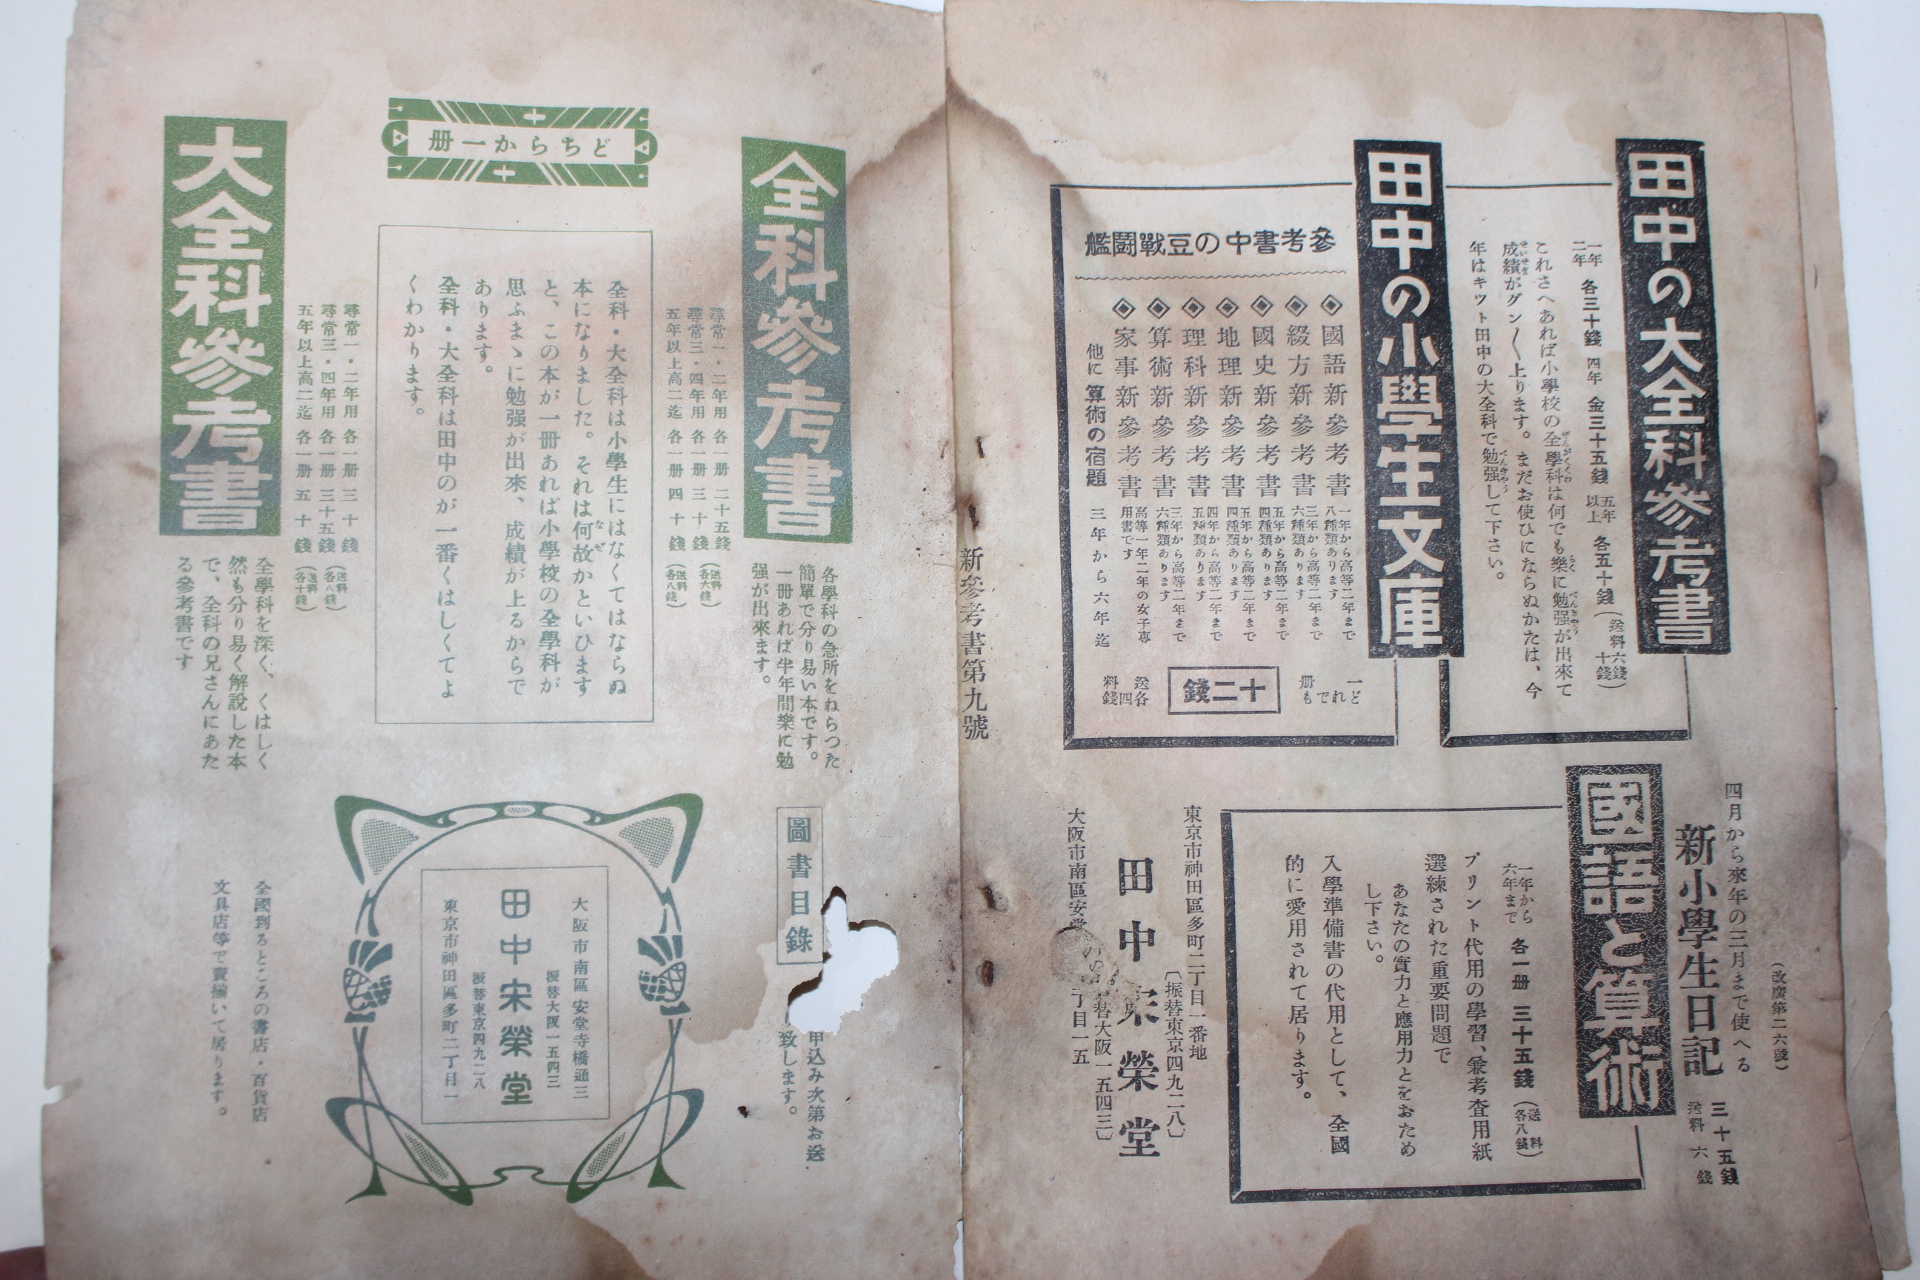 田中の大全科參考書
一年
二年
各三十錢
四年 金三十五錢
五年
以上
各五十錢
(送料六錢
十錢)
これさへあれば小學校の全學科は何でも樂に勉强が出來て
成績がグン〱上ります。まだお使ひにならぬかたは、今
年はキット田中の大全科で勉强して下さい。
田中の小學生文庫
參考書中の豆戰鬪艦
◈國語新參考書 一年から高等二年まで
八種類あります
◈綴方新參考書 三年から高等二年まで
六種類あります
◈國史新參考書 五年から高等二年まで
四種類あります
◈地理新參考書 五年から高等二年まで
四種類あります
◈理科新參考書 四年から高等二年まで
五種類あります
◈算術新參考書 三年から高等二年まで
六種類あります
◈家事新參考書 高等一年二年の女子專
用書です
他に 算術の宿題 三年から六年迄
どれでも
一册
十二錢
送料
各四錢
四月から來年の三月まで使へる
(改廣第二六號)
新小學生日記
三十五錢
送料 六錢
國語と算術
一年から
六年まで
各一册 三十五錢
(送料
各八錢)
プリント代用の學習、兼考査用紙
選練された重要問題で
あなたの實力と應用力とをおため
し下さい。
入學準備書の代用として、全國
的に愛用されて居ります。
東京市神田區多町二丁目一番地
〔振替東京四九二八〕
田中宋榮堂
替大阪一五四三〕
大阪市南區安堂
丁目一五
新參考書第九號
全科參考書
尋常一・二年用 各一册 二十五錢
尋常三・四年用 各一册 三十錢
(送料
各六錢)
五年以上高二迄 各一册 四十錢
(送料
各八錢)
各學科の急所をねらつた
簡單で分り易い本です。
一册あれば半年間樂に勉
强が出來ます。
どちらか一册
全科・大全科は小學生にはなくてはならぬ
本になりました。それは何故かといひます
と、この本が一册あれば小學校の全學科が
思ふまゝに勉强が出來、成績が上るからで
あります。
全科・大全科は田中のが一番くはしくてよ
くわかります。
大全科參考書
尋常一・二年用 各一册 三十錢
尋常三・四年用 各一册 三十五錢
(送料
各八錢)
五年以上高二迄 各一册 五十錢
(送料
各十錢)
全學科を深く、くはしく
然も分り易く解說した本
で、全科の兄さんにあた
る參考書です
圖書目錄
申込み次第お送
致します。
大阪市南區安堂寺橋通三
振替大阪一五四三
田中宋榮堂
振替東京四九二八
東京市神田區多町二丁目一
全國到るところの書店・百貨店
文具店等で賣揃いて居ります。